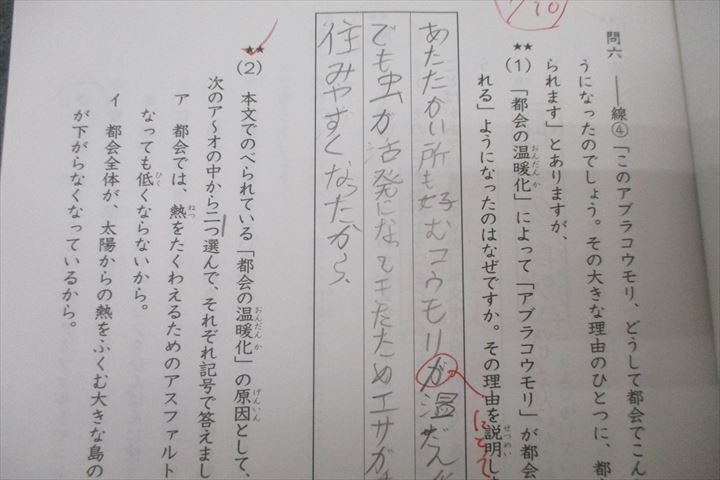 /10
問六 ――線④「このアブラコウモリ、どうして都会でこん
うになったのでしょう。その大きな理由のひとつに、都
られます」とありますが、
★★
(1) 「都会の温暖化」によって「アブラコウモリ」が都会
れる」ようになったのはなぜですか。その理由を説明し
おんだん か
せつめい
にとって
あたたかい所も好むコウモリが温だん
でも虫が活発になってきたためエサが
住みやすくなったから、
★★
(2) 本文でのべられている「都会の温暖化」の原因として、
おんだん か
げんいん
次のア～オの中から二つ選んで、それぞれ記号で答えまし
ア 都会では、熱をたくわえるためのアスファルト
ねつ
なっても低くならないから。
ひく
イ 都会全体が、太陽からの熱をふくむ大きな島の
が下がらなくなっているから。